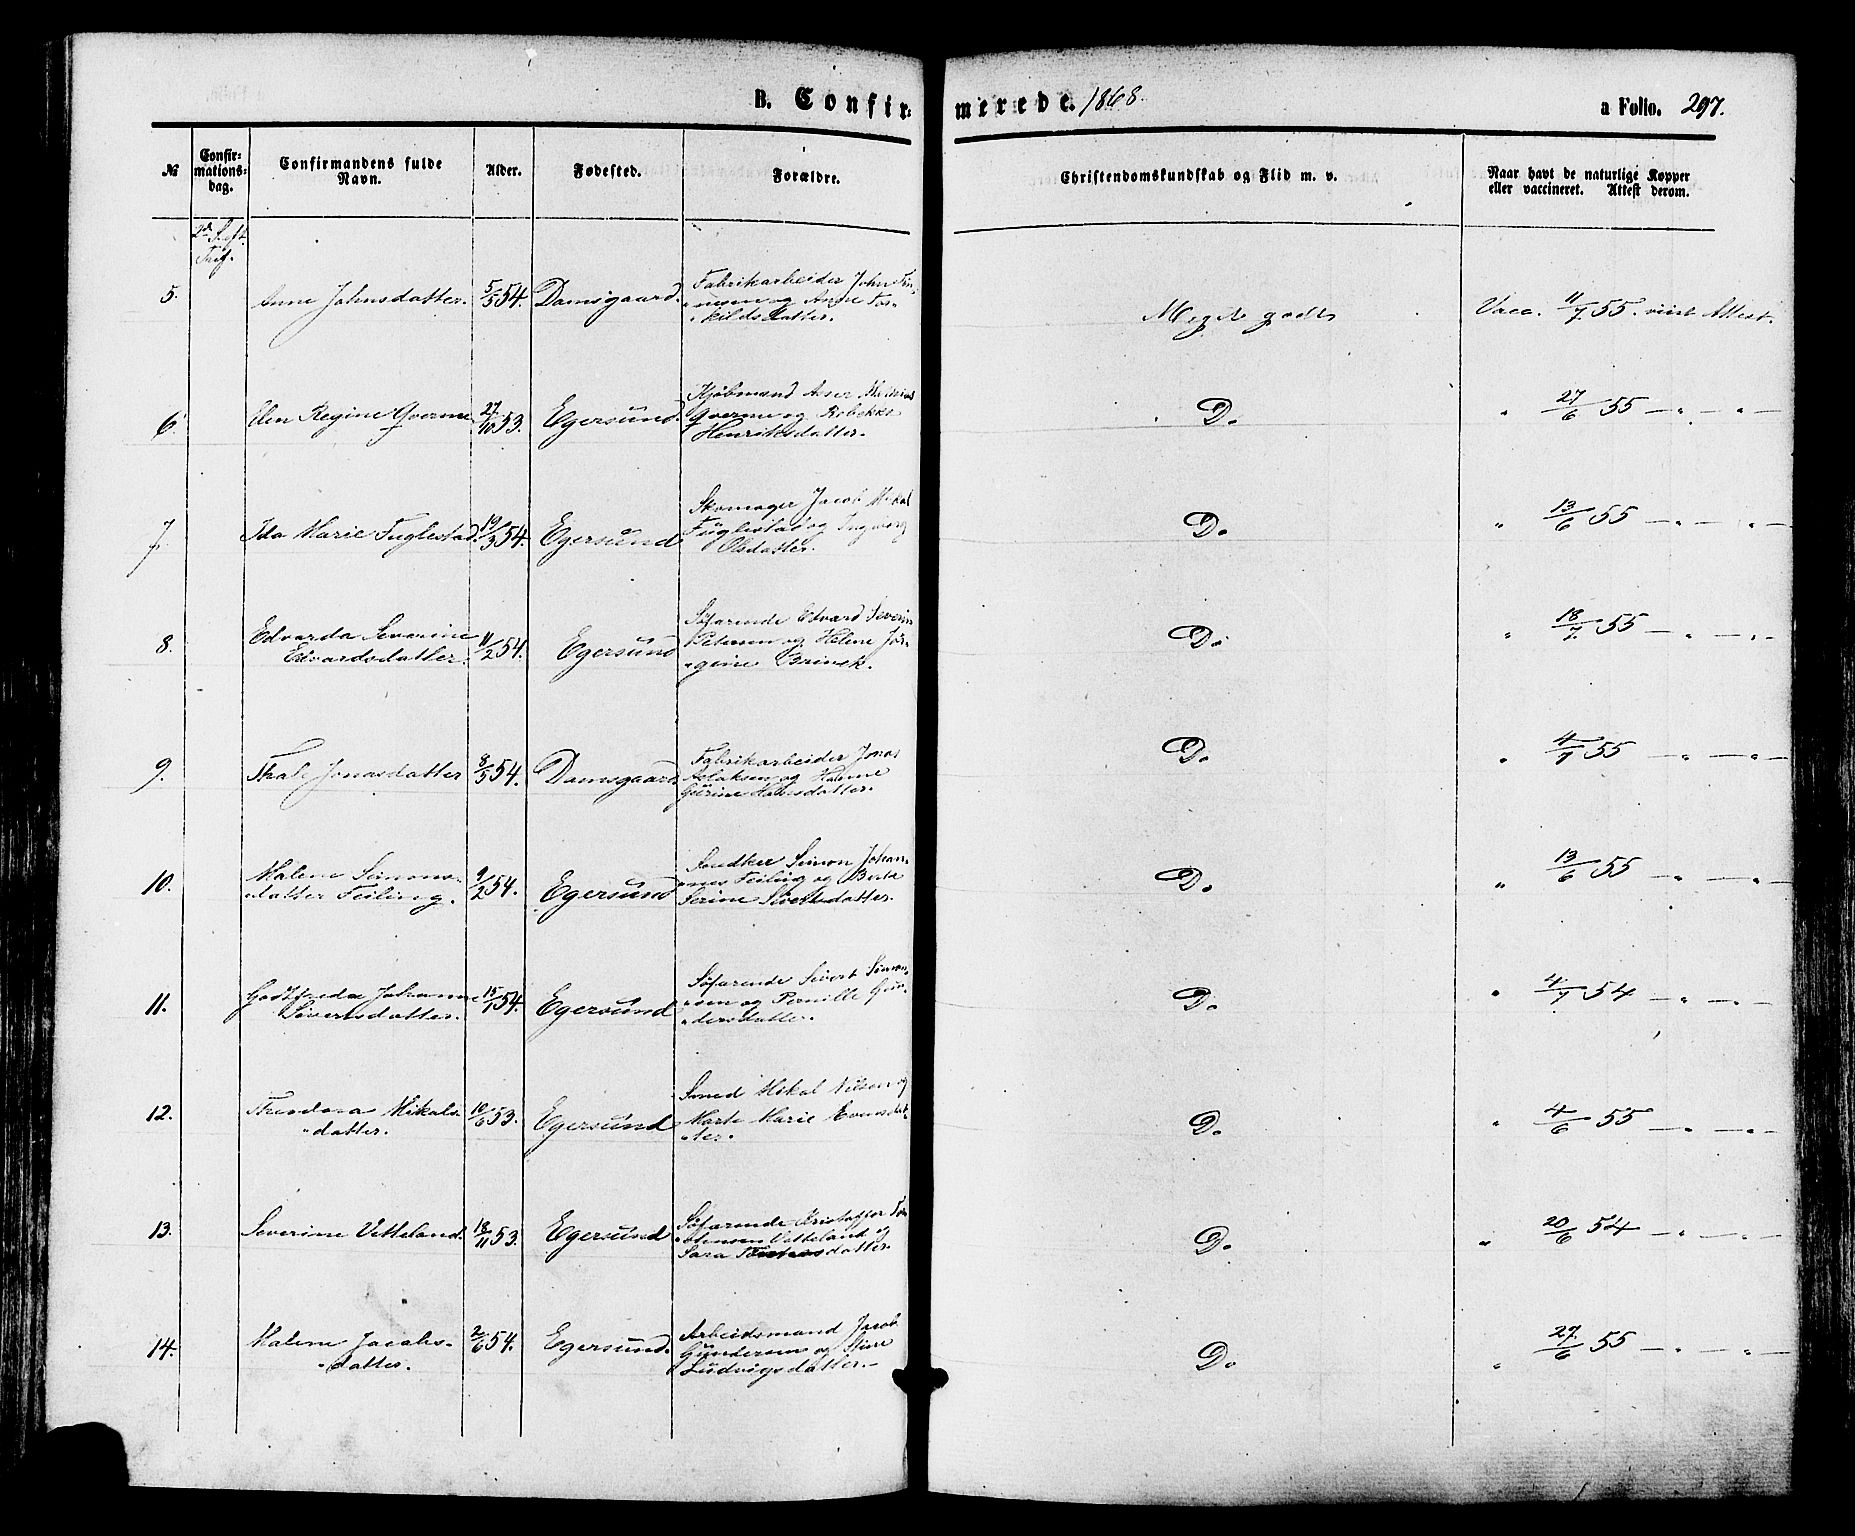 B. Confirmerede. 1868.
a Folio. 297.
№ Confirmationsdag. Confirmandens fulde Navn. Alder. Fødested. Forældre. Christendomskundskab og Flid m. v. Naar havt de naturlige Kopper eller vaccineret. Attest derom.
5. Anne Johnsdatter. 5/5 54. Damsgaard. Fabrikarbeider John
og Anne
"kildsdatter.
Meget godt
Vacc. 11/7 55. viist Attest.
6. Elen Regine Gverme 27/10 53. Egersund. Kjöbmand
Gverme og Rebekka
Henriksdatter.
Do
" 27/6 55 — " — " —
7. Ida Marie Fuglestad. 19/3 54. Egersund Skomager Jacob Mikal
Fuglestad og Ingeborg
Olsdatter.
Do
" 13/6 55 — " — " —
8. Edvarda Severine
Edvardsdatter. 11/2 54. Egersund Söfarende Edvard Severin
Petersen og Helene Jör-
"gine Brinck.
Do
" 18/7 55 — " — " —
9. Thale Jonasdatter 8/5 54. Damsgaard. Fabrikarbeider Jonas
Aslaksen og Malene
Gurine Hansdatter.
Do
" 4/7 55 — " — " —
10. Malene Simons-
"datter Feiling. 9/2 54. Egersund Snedker Simon Johan-
"nes Feiling og Berte
Serine Sivertsdatter.
Do
" 13/6 55 — " — " —
11. Godtfreda Johanne
Sivertsdatter. 15/1 54. Egersund Söfarende Sivert Simon-
"sen og Pernille Gun-
"dersdatter.
Do
" 4/7 54 — " — " —
12. Theodora Mikals-
"datter. 10/6 53. Egersund Smed Mikal Nilsen og
Marte Marie Evensdat-
"ter.
Do
" 4/6 55 — " — " —
13. Severine Vetteland. 18/11 53. Egersund Söfarende Kristoffer
Vetteland og
Sara
Do
" 20/6 54 — " — " —
14. Malene Jacobs-
"datter. 2/6 54. Egersund. Arbeidsmand Jacob
Gundersen og Stine
Ludvigsdatter.
Do
" 27/6 55 — " — " —